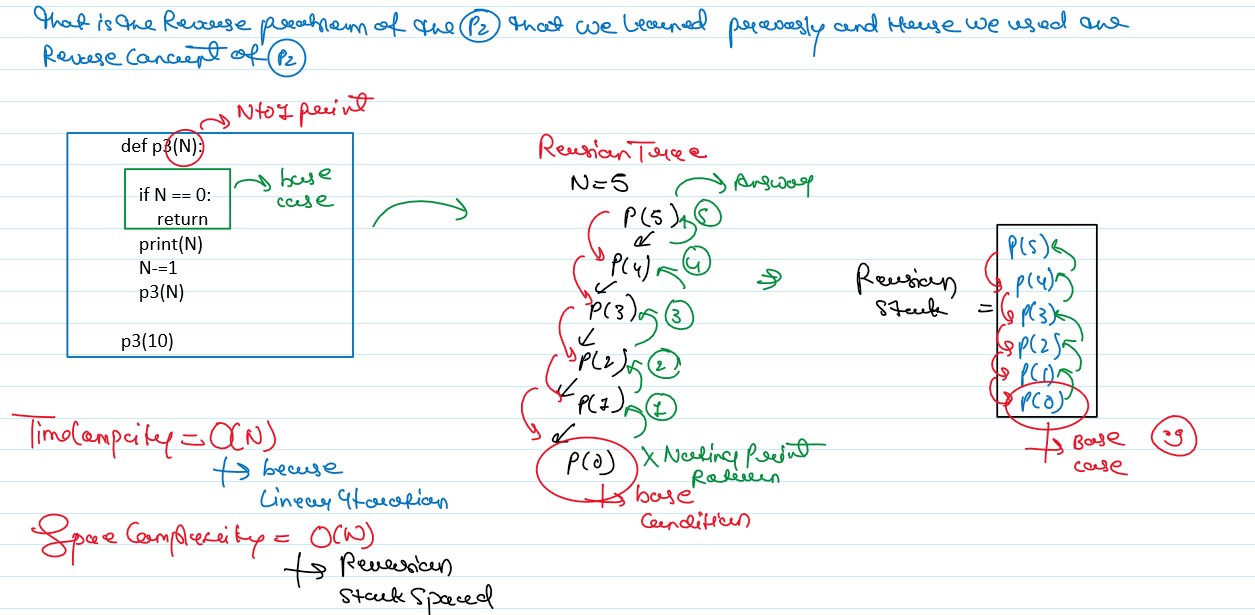 that is the Reverse problem of the P2 that we learned previously and Hense we used the
Reverse Concept of P2
N to 1 print
def p3(N):
if N == 0:
return
base
case
print(N)
N-=1
p3(N)
p3(10)
Recursion Tree
N=5
Answer
P(5) 5
P(4) 4
P(3) 3
P(2) 2
P(1) 1
P(0) X Nothing Print
Return
base
Condition
Recursion
Stack =
P(5)
P(4)
P(3)
P(2)
P(1)
P(0)
Base
case
Time Complexity = O(N)
because
Linear Iteration
Space Complexity = O(N)
Recursion
Stack Spaced